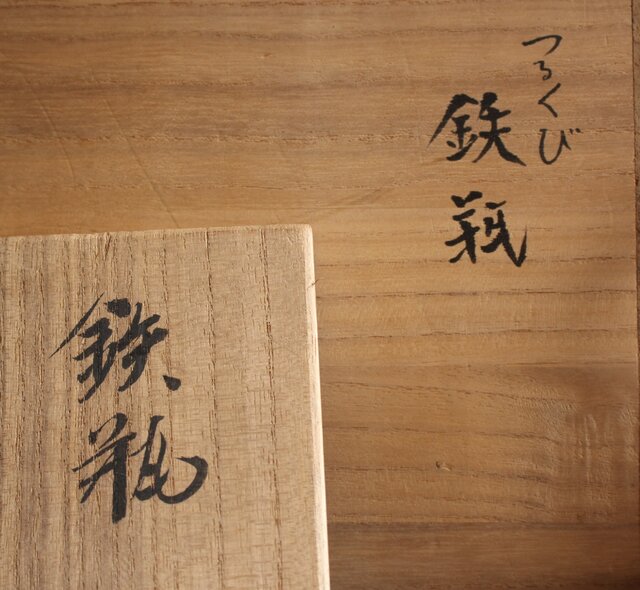 つるくび
鉄瓶
鉄瓶